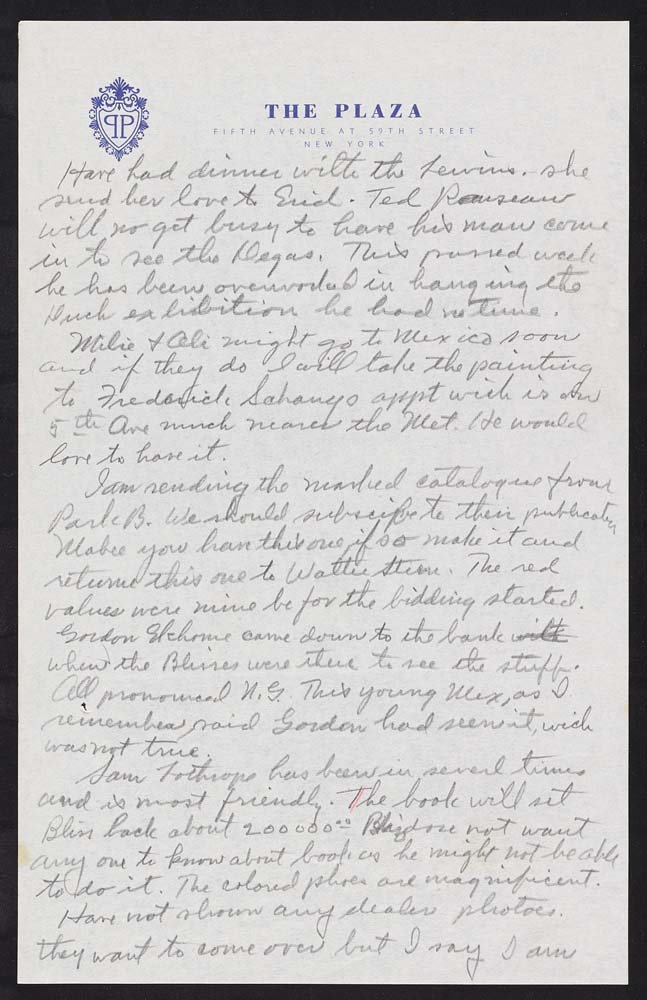 THE PLAZA
FIFTH AVENUE AT 59TH STREET
NEW YORK
Have had dinner with the Lewins. she
send her love to Enid. Ted Rousseau
will no get busy to have his man come
in to see the Degas. This passed week
he has been overworked in hanging the
Duch exhibition he had no time.
Milie & Ali might go to Mexico soon
and if they do I will take the painting
to Frederick Schangs appt wich is on
5th Ave much nearer the Met. He would
love to have it.
I am sending the marked catalogue from
Park B. We should subscribe to their publication
Mabee you han this one, if so make it and
returne this one to Wattie Stern. The red
values were mine be for the bidding started.
Gordon Ekholme came down to the bank with
when the Blisses were there to see the stuff.
All pronounced N.G. This young Mex, as I
remember, said Gordon had seen it, wich
was not true.
Sam Lothrope has been in severl times
and is most friendly. The book will set
Bliss back about 200000⁰⁰ Bliss dose not want
any one to know about book as he might not be able
to do it. The colored photos are magnificent.
Have not shown any dealer photoes.
they want to come over but I say I am